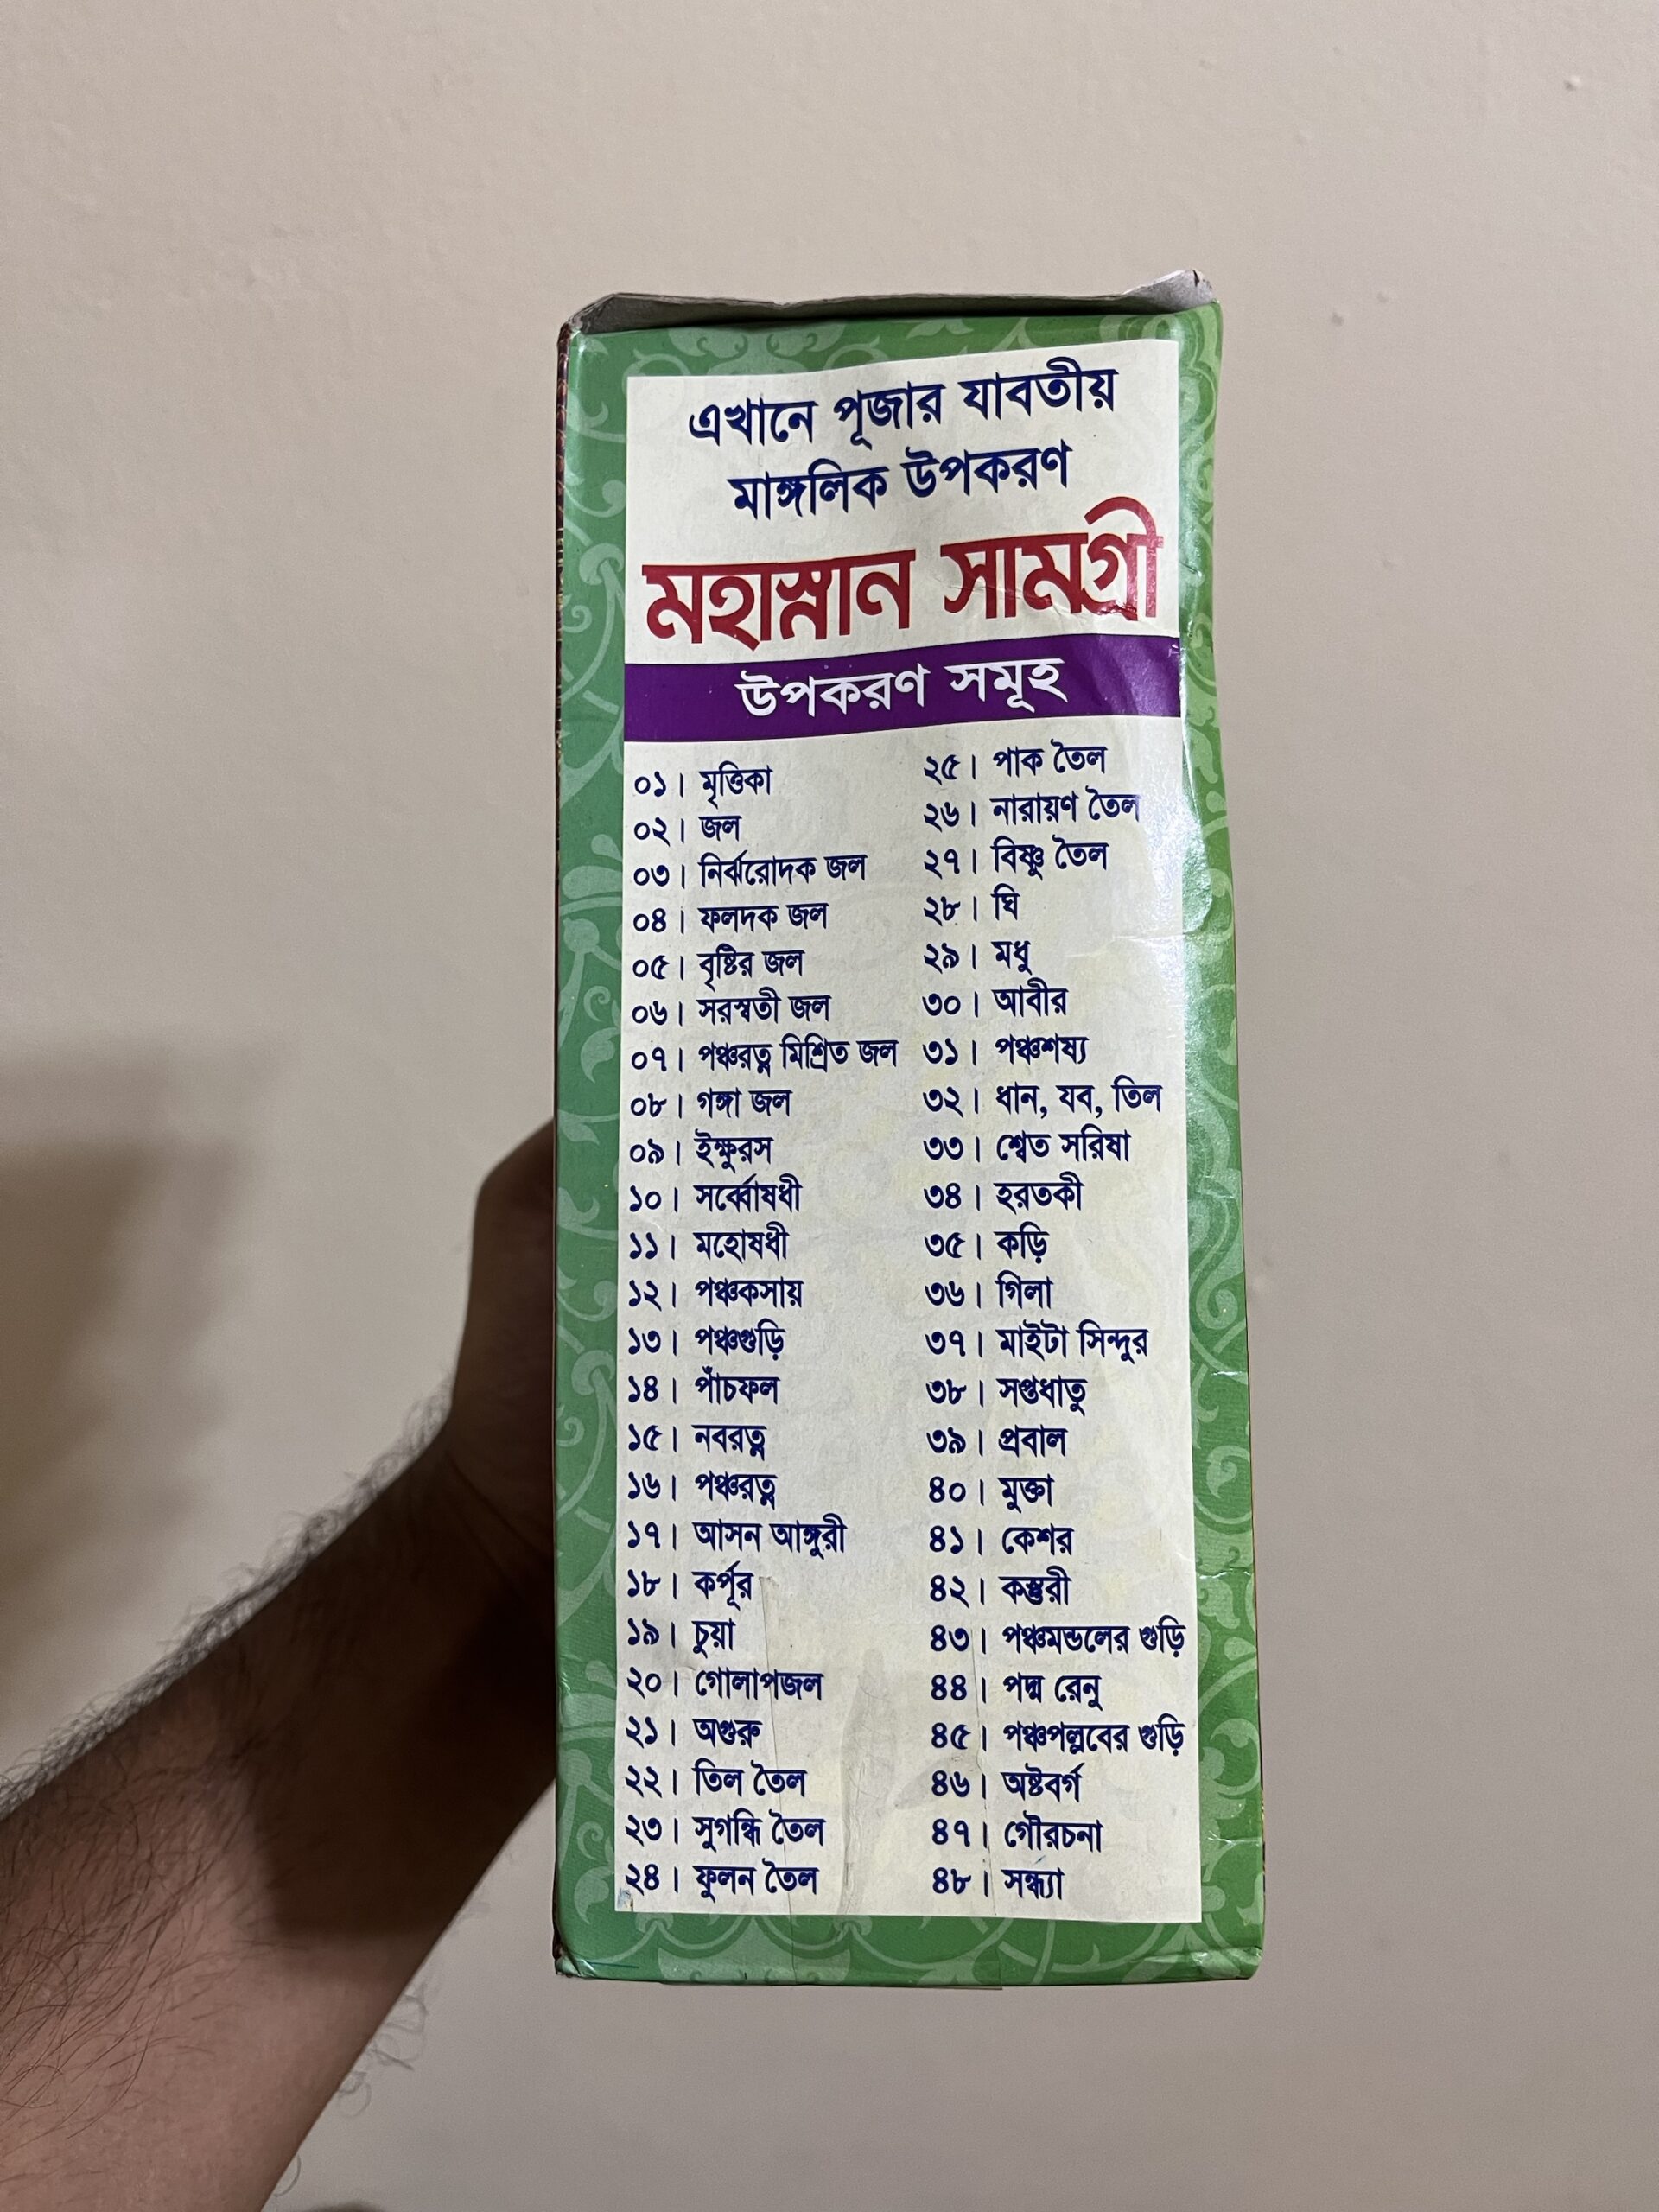 এখানে পূজার যাবতীয়
মাঙ্গলিক উপকরণ
মহাস্নান সামগ্রী
উপকরণ সমূহ
০১। মৃত্তিকা
০২। জল
০৩। নির্ঝরোদক জল
০৪। ফলদক জল
০৫। বৃষ্টির জল
০৬। সরস্বতী জল
০৭। পঞ্চরত্ন মিশ্রিত জল
০৮। গঙ্গা জল
০৯। ইক্ষুরস
১০। সর্ব্বোষধী
১১। মহোষধী
১২। পঞ্চকসায়
১৩। পঞ্চগুড়ি
১৪। পাঁচফল
১৫। নবরত্ন
১৬। পঞ্চরত্ন
১৭। আসন আঙ্গুরী
১৮। কর্পূর
১৯। চুয়া
২০। গোলাপজল
২১। অগুরু
২২। তিল তৈল
২৩। সুগন্ধি তৈল
২৪। ফুলন তৈল
২৫। পাক তৈল
২৬। নারায়ণ তৈল
২৭। বিষ্ণু তৈল
২৮। ঘি
২৯। মধু
৩০। আবীর
৩১। পঞ্চশষ্য
৩২। ধান, যব, তিল
৩৩। শ্বেত সরিষা
৩৪। হরতকী
৩৫। কড়ি
৩৬। গিলা
৩৭। মাইটা সিন্দুর
৩৮। সপ্তধাতু
৩৯। প্রবাল
৪০। মুক্তা
৪১। কেশর
৪২। কস্তুরী
৪৩। পঞ্চমন্ডলের গুড়ি
৪৪। পদ্ম রেনু
৪৫। পঞ্চপল্লবের গুড়ি
৪৬। অষ্টবর্গ
৪৭। গৌরচনা
৪৮। সন্ধ্যা